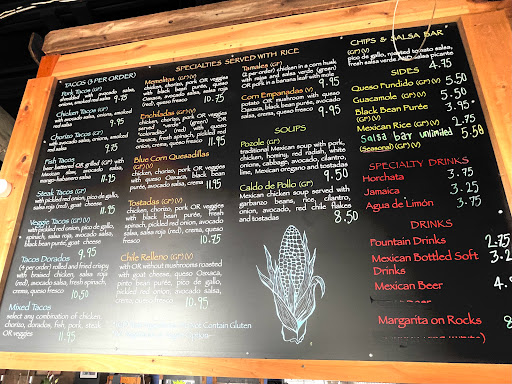 TACOS (3 PER ORDER)
Pork Tacos (GF)
shredded with avocado salsa,
onions, smoked red salsa 9.75
Chicken Tacos (GF)
with avocado salsa, onions, smoked
red salsa
9.75
Chorizo Tacos (GF)
with avocado salsa, onions, smoked
red salsa
9.75
Fish Tacos
beer battered OR grilled (GF) with
Mexican slaw, avocado salsa,
mango-habanero salsa 11.95
Steak Tacos (GF)
with pickled red onion, pico de gallo,
salsa roja (red), goat cheese
11.95
Veggie Tacos (GF)(V)
with pickled red onion, pico de gallo,
spinach, salsa roja, avocado salsa,
black bean purée, goat cheese
9.95
Tacos Dorados
(4 per order) rolled and fried crispy
with braised chicken, salsa roja
(red), avocado salsa, fresh spinach,
crema, queso fresco
10.50
Mixed Tacos
select any combination of chicken,
chorizo, dorados, fish, pork, steak
OR veggies
11.95
SPECIALTIES SERVED WITH RICE
Memelitas (GF)(V)
chicken, chorizo, pork OR veggies
with black bean purée, queso
Oaxaca, avocado salsa, salsa roja
(red), pickled red onion, crema,
queso fresco 10.75
Enchiladas (GF)(V)
chicken, chorizo, pork OR veggies
served "verde" (green) OR
"coloradito" (red) with queso
Oaxaca, fresh spinach, pickled red
onion, crema, queso fresco 11.95
Blue Corn Quesadillas
(GF)(V)
chicken, chorizo, pork OR veggies
with queso Oaxaca, black bean purée,
avocado salsa, crema 11.95
Tostadas (GF)(V)
chicken, chorizo, pork OR veggies
with black bean purée, fresh
spinach, pickled red onion, avocado
salsa, salsa roja (red), crema,
queso fresco
10.75
Chile Relleno (GF)(V)
with OR without mushrooms roasted
with goat cheese, queso Oaxaca,
black bean purée, pico de gallo,
pickled red onion, avocado salsa,
crema, queso fresco
10.95
Not Contain Gluten
Tamales (GF)
(2 per order) chicken in a corn husk
with rajas and salsa verde (green)
OR pork in a banana leaf with mole
9.95
Corn Empanadas (V)
potato OR mushroom with queso
Oaxaca, black bean purée, avocado
salsa, crema, queso fresco
9.95
SOUPS
Pozole (GF)
traditional Mexican soup with pork,
chicken, hominy, red radish, white
onions, cabbage, avocado, cilantro,
lime, Mexican oregano and tostadas
9.50
Caldo de Pollo (GF)
Mexican chicken soup served with
garbanzo beans, rice, cilantro,
onion, avocado, red chile flakes
and tostadas
8.50
CHIPS & SALSA BAR
(GF)(V)
pico de gallo, roasted tomato salsa,
fresh salsa verde AND salsa picante
4.75
SIDES
Queso Fundido (GF)(V) 5.50
Guacamole (GF)(V) 5.50
Black Bean Purée
(GF)(V) 3.95
Mexican Rice (GF)(V) 2.75
Salsa bar unlimited 5.50
(Seasonal)(GF)(V)
SPECIALTY DRINKS
Horchata 3.75
Jamaica 3.25
Agua de Limón 3.75
DRINKS
Fountain Drinks 2.75
Mexican Bottled Soft
Drinks
Mexican Beer
Margarita on Rocks